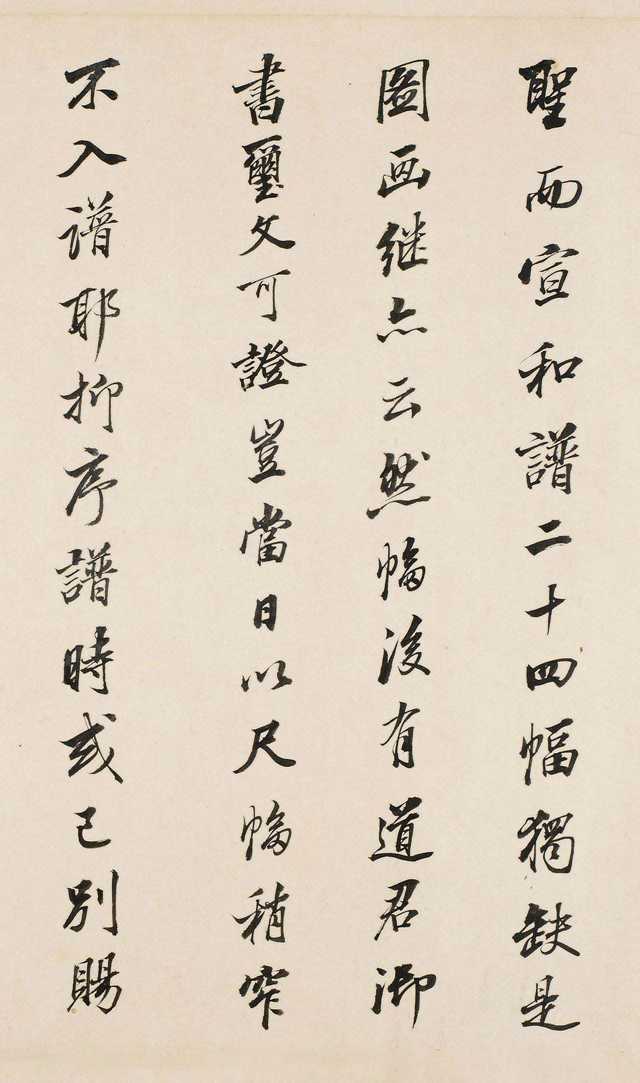 聖而宣和譜二十四幅獨缺是
圖画継亦云然幅後有道君御
書璽文可證豈當日以尺幅稍窄
不入譜耶抑序譜時或已別賜